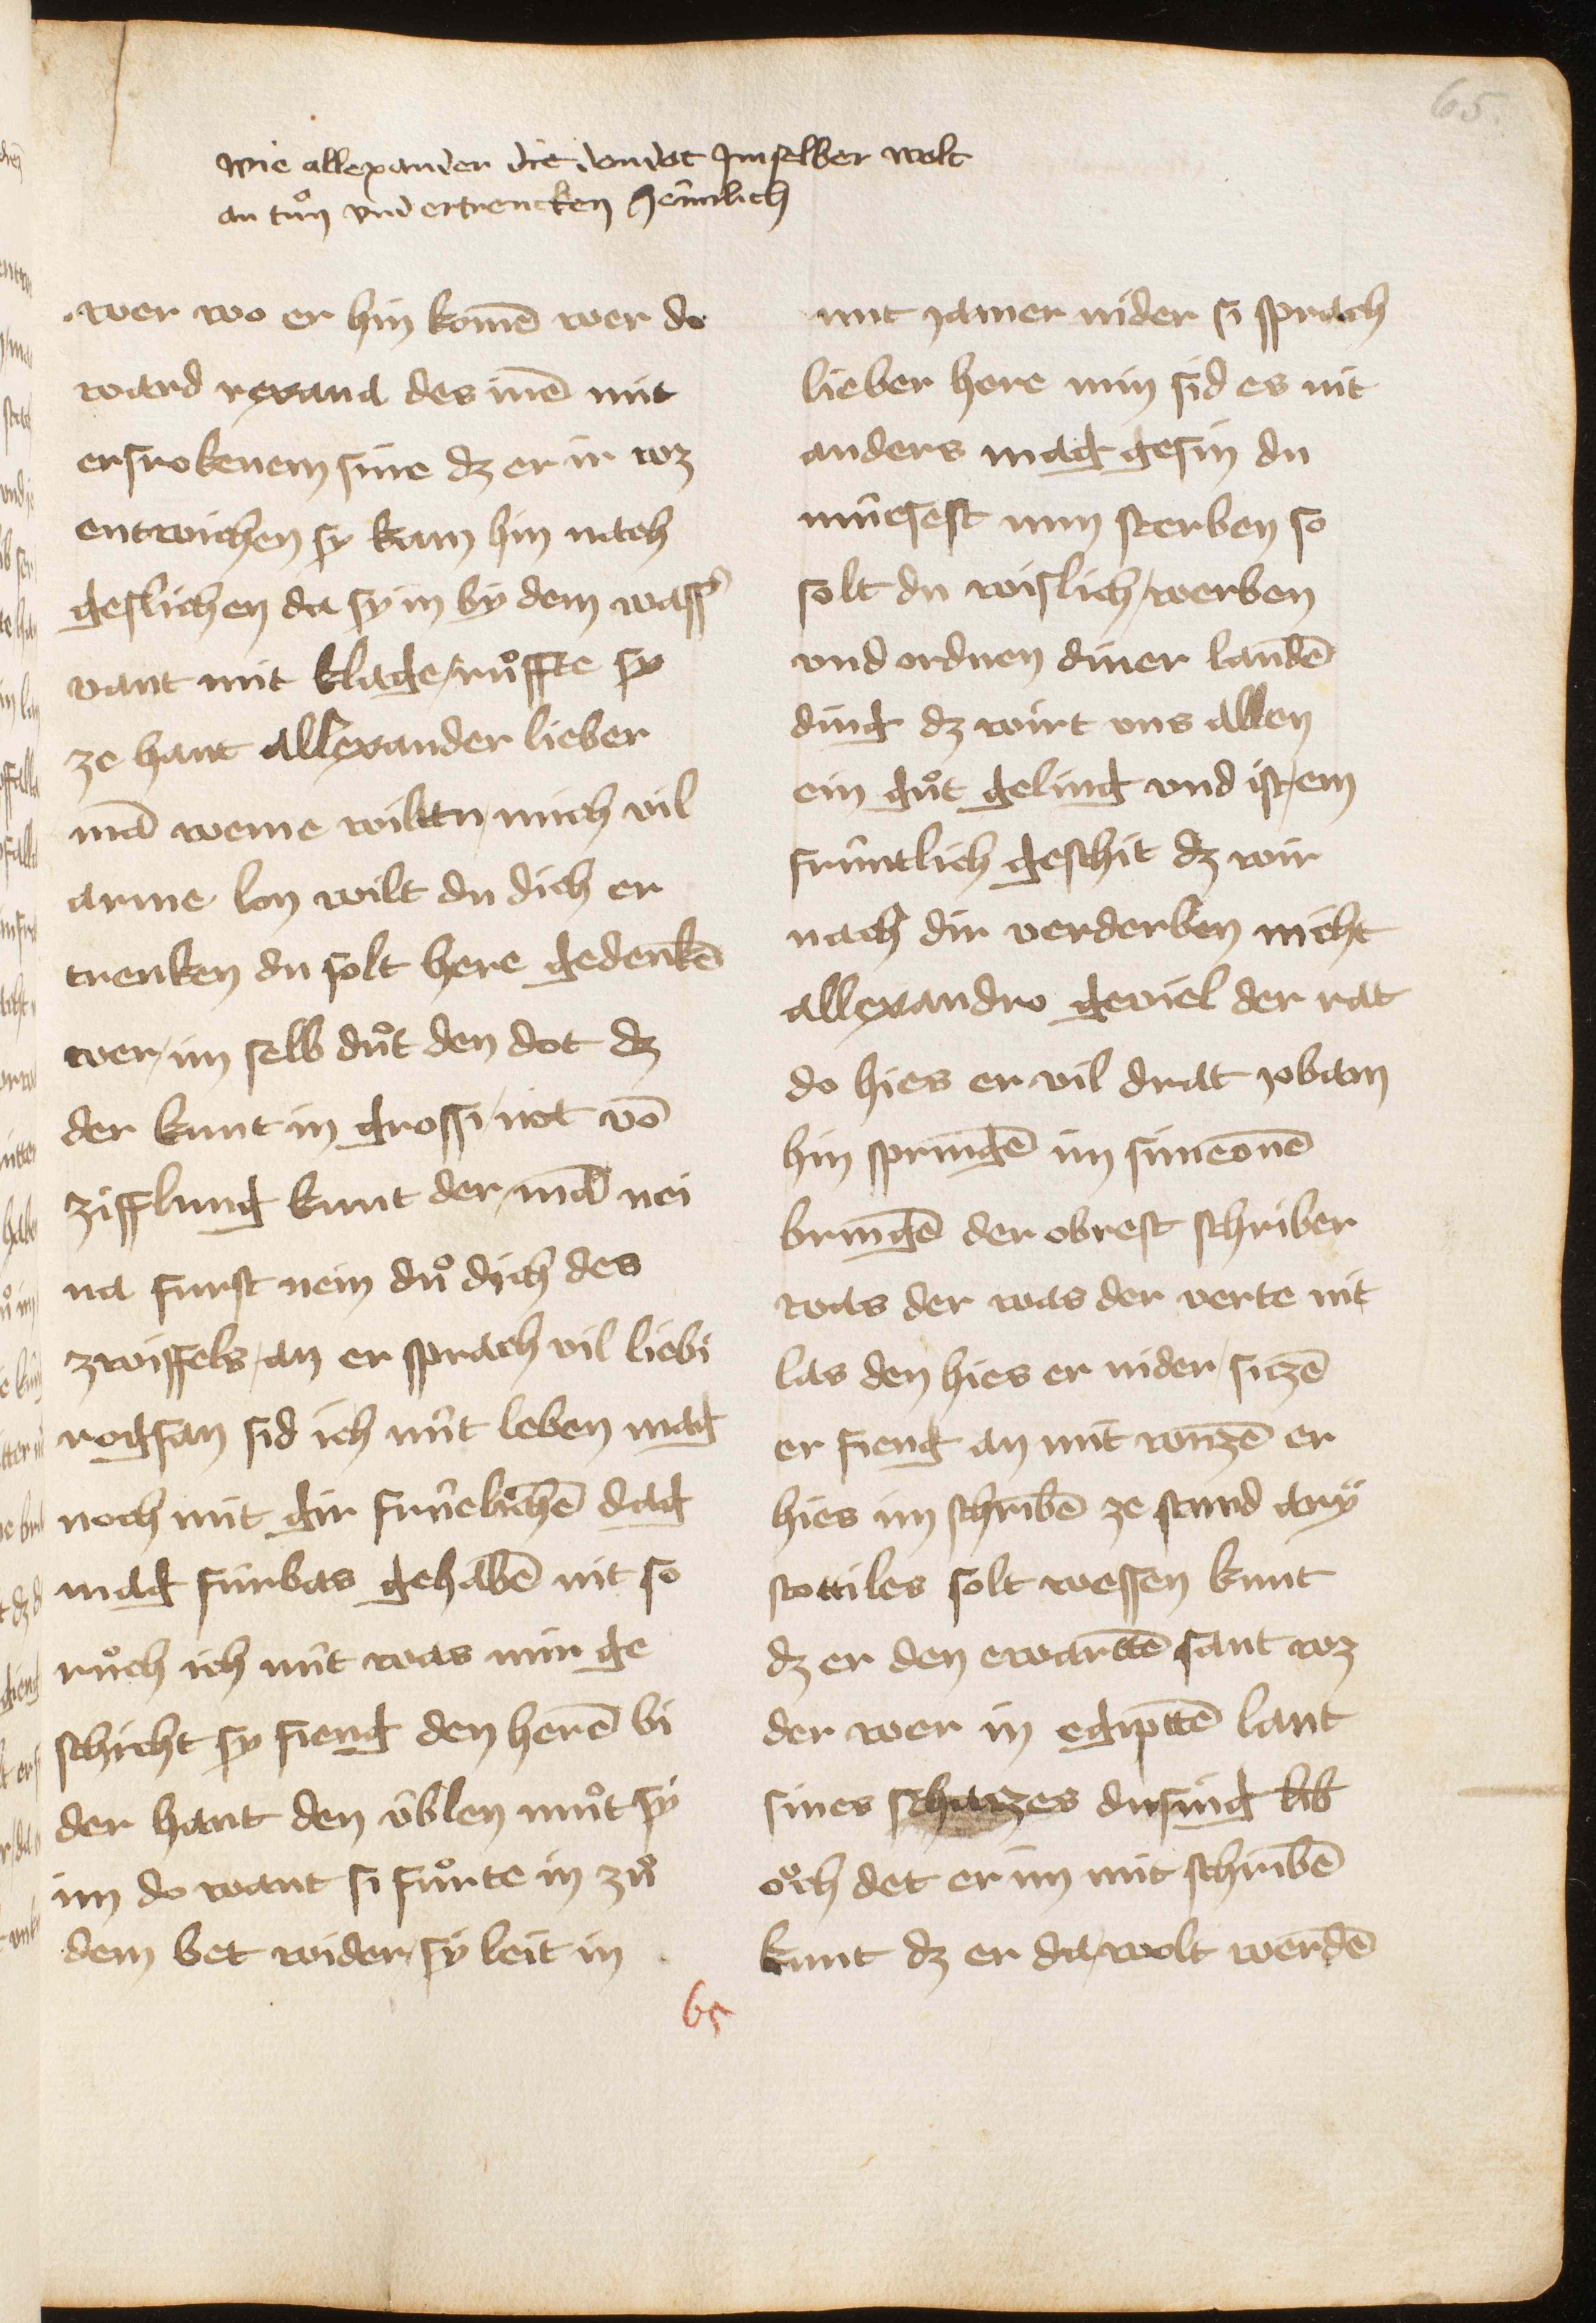 65.
wie allexander die von dot Im selber wolt
an tuͦn vnd ertrencken heimlich
wer wo er hin komē wer do
ward rexana des inē mit
ersrokenem sine dz er ir wz
entwichen sy kam hin nach
geslichen da sy in by dem wasser
vant mit klage ruͦffte sy
ze hant allexander lieber
mā weme wilttu mich vil
arme lon wilt du dich er
trenken du solt here gedenkē
wer im selb duͦt den dot dz
der kunt in grossi not vō
zifflung kunt der mā nei
na furst nein duͦ dich des
zwiffels an er sprach vil liebi
rogsan sid ich nüt leben mag
noch mit dir fröelichē dag
mag fürbas gehabē nit so
ruͦch ich nüt was mir ge
schicht sy fieng den herē bi
der hant den üblen muͦt sy
im do want si fuͦrte in zuͦ
dem bet wider sy leit in
mit jamer nider si sprach
lieber here min sid es nit
anders mag gesin du
müesest nun sterben so
solt du wislich werben
vnd ordnen diner landē
ding dz wirt vns allen
ein guͦt geling vnd ist em
früntlich geschit dz wir
nach dir verderben nicht
allexandro geviel der rat
do hies er vil drat jobam
hin springē im simeonē
bringē der obrest schriber
was der was der verte nit
las den hies er nider sitzē
er fieng an mit witzē er
hies im schribē ze stund ary
stottiles solt wessen kunt
dz er den ewarttē sant wz
der wer in egipttē lant
sines schatzes dusing lib
och det er im mit schribē
kunt dz er da wolt werdē
65